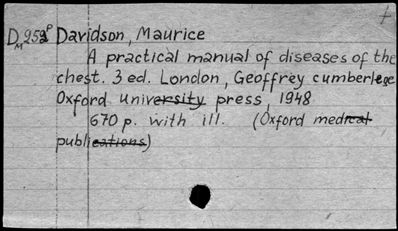 DM952P Davidson, Maurice
A practical manual of diseases of the
chest. 3 ed. London, Geoffrey cumberlege
Oxford university press, 1948
670 p. with ill. (Oxford medical
publications)